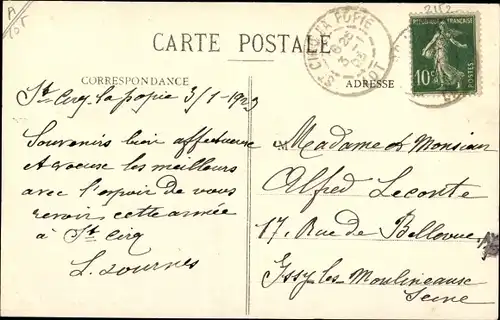 A
105
2152
CARTE POSTALE
ST CIRQ LA POPIE
LOT
REPUBLIQUE FRANÇAISE
10c
POSTES
CORRESPONDANCE
ADRESSE
St Cirq-la-popie 3/1-1923
Souvenirs bien affectueux
A vous les meilleurs
avec l'espoir de vous
revoir cette année
à St Cirq
L. Sournes
Madame et Monsieur
Alfred Leconte
17, Rue de Bellevue
Issy-les-Moulineaux
Seine